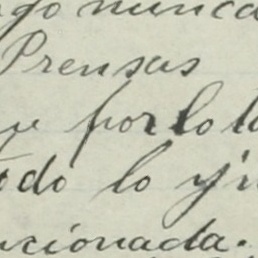 go nunca
Prensas
y por lo ta
odo lo y'
ncionada.